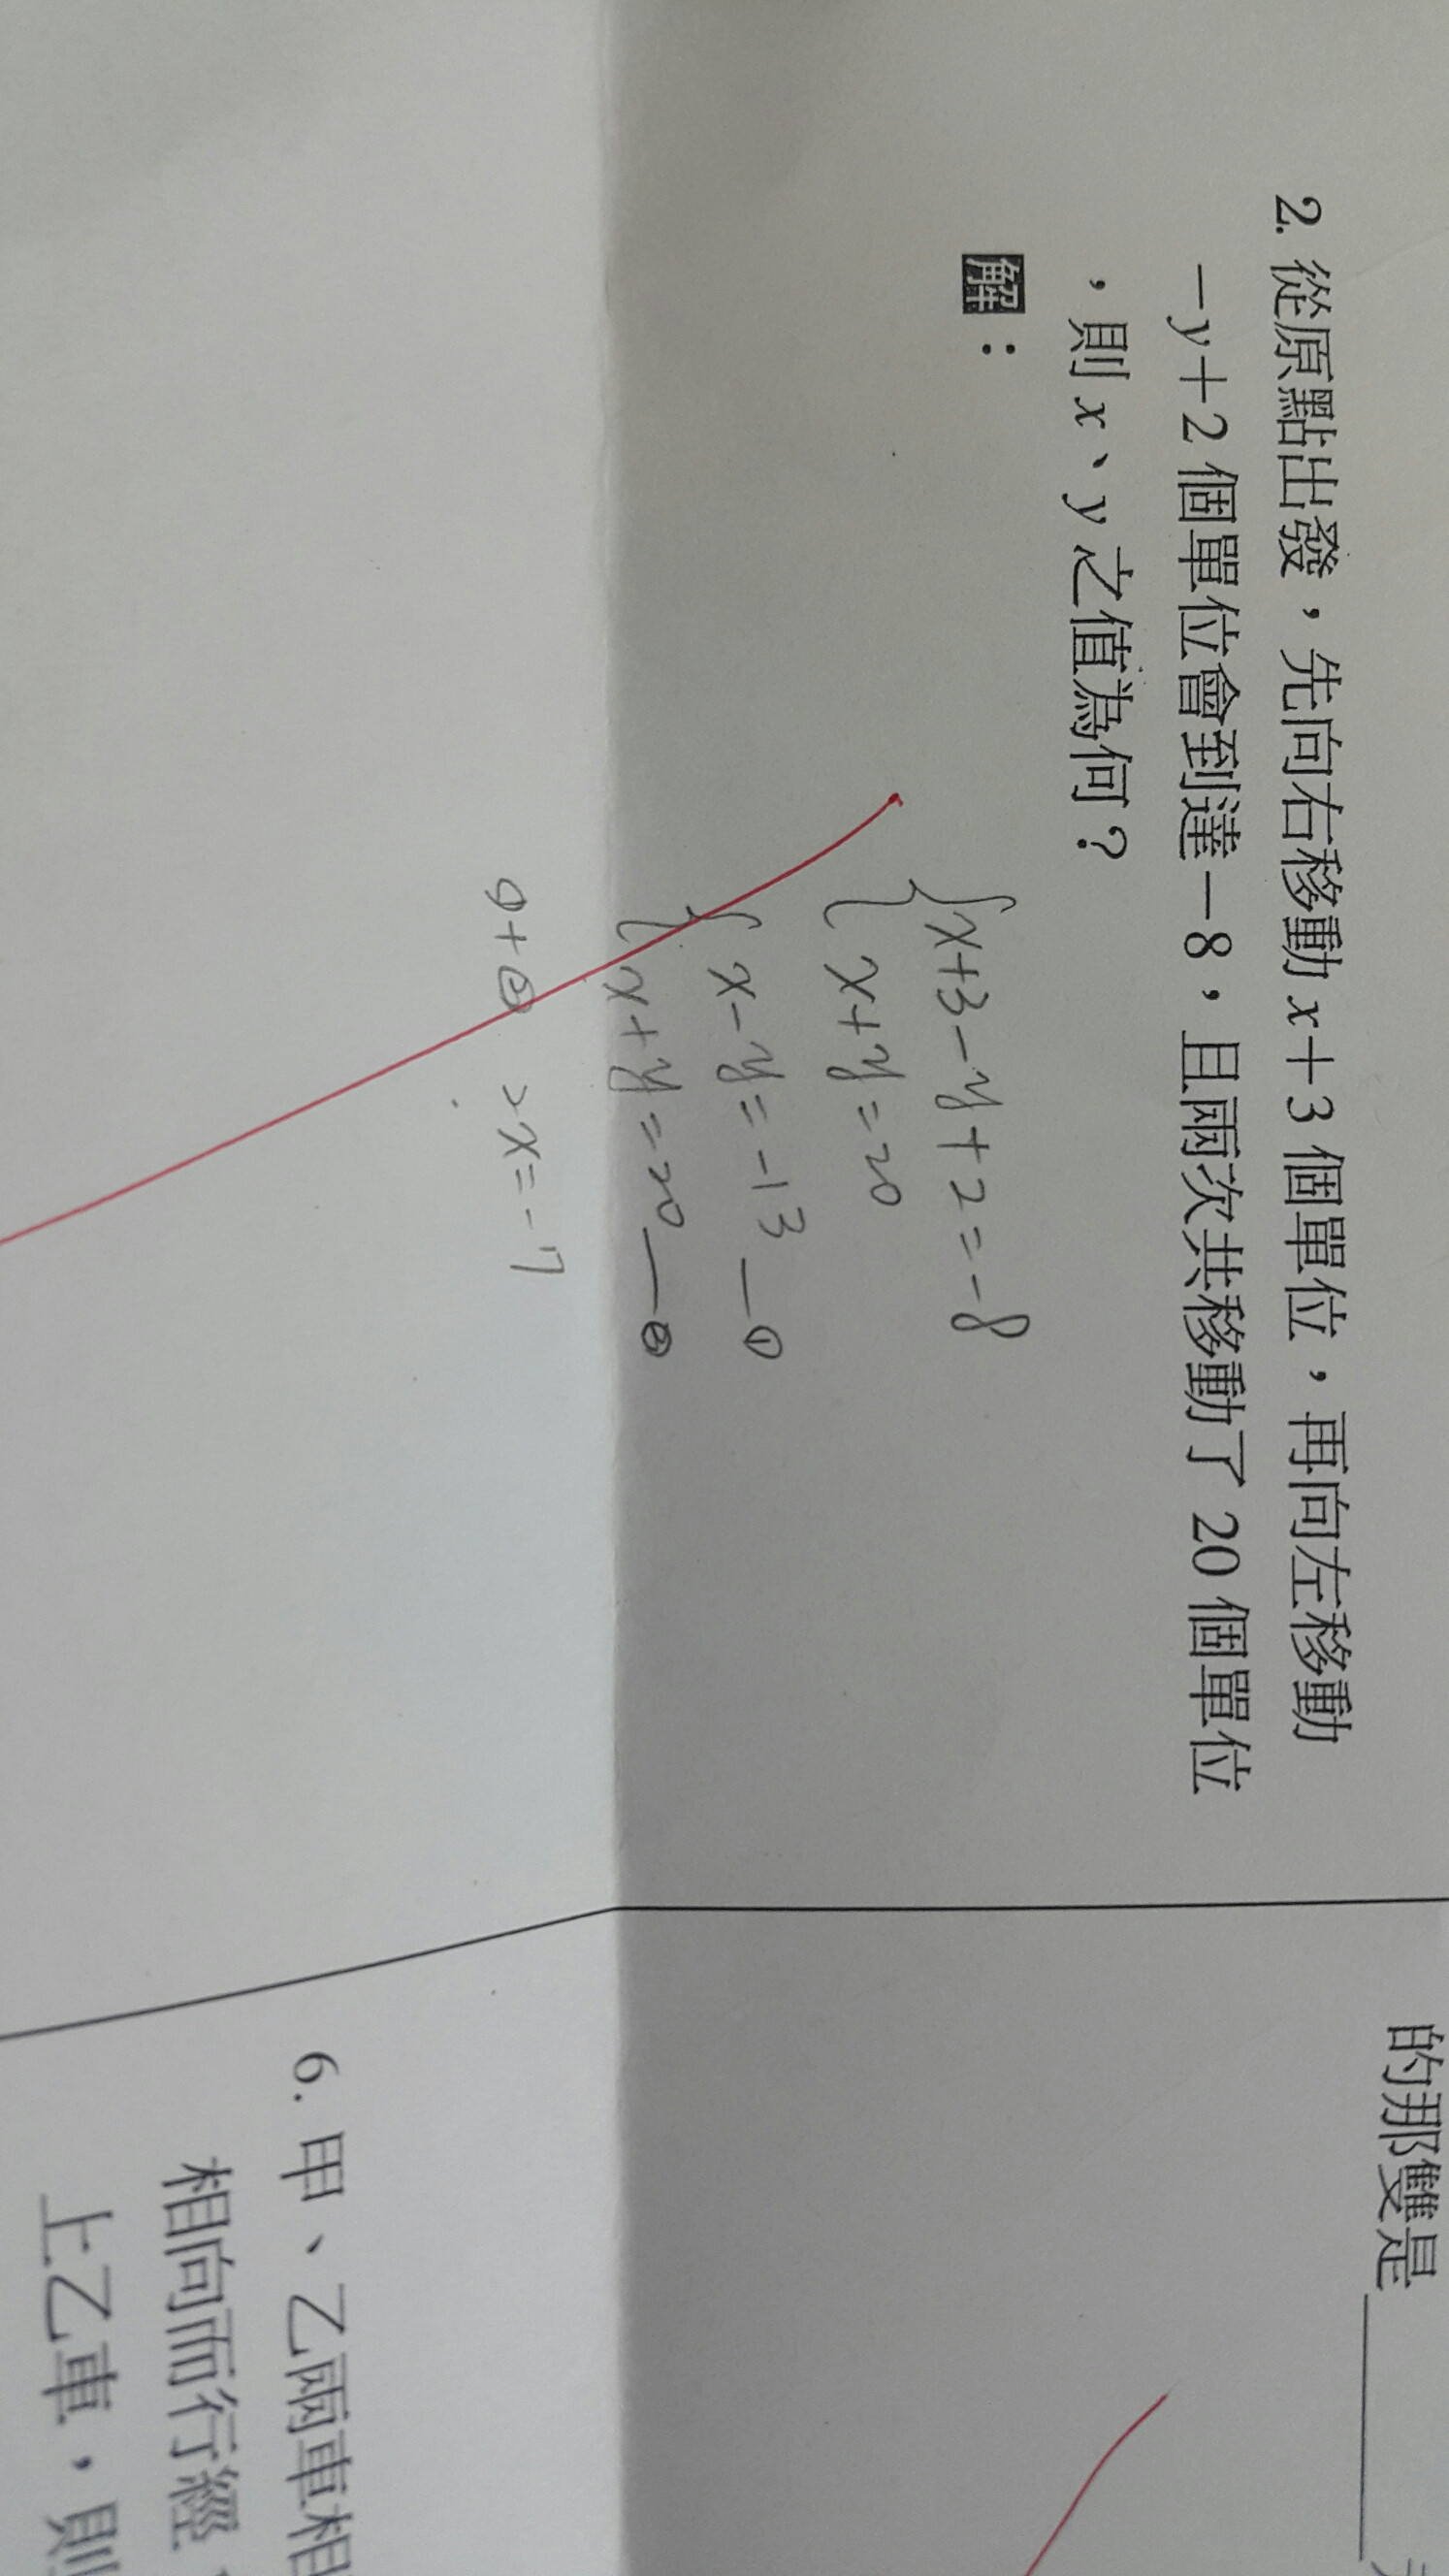 2. 從原點出發，先向右移動 x＋3 個單位，再向左移動
－y＋2 個單位會到達－8，且兩次共移動了 20 個單位
，則 x、y 之值為何？
解：
x+3-y+2=-8
x+y=20
x-y=-13 — ①
x+y=20 — ②
①+② >x=-7
的那雙是
6. 甲、乙兩車相
相向而行經
上乙車，則